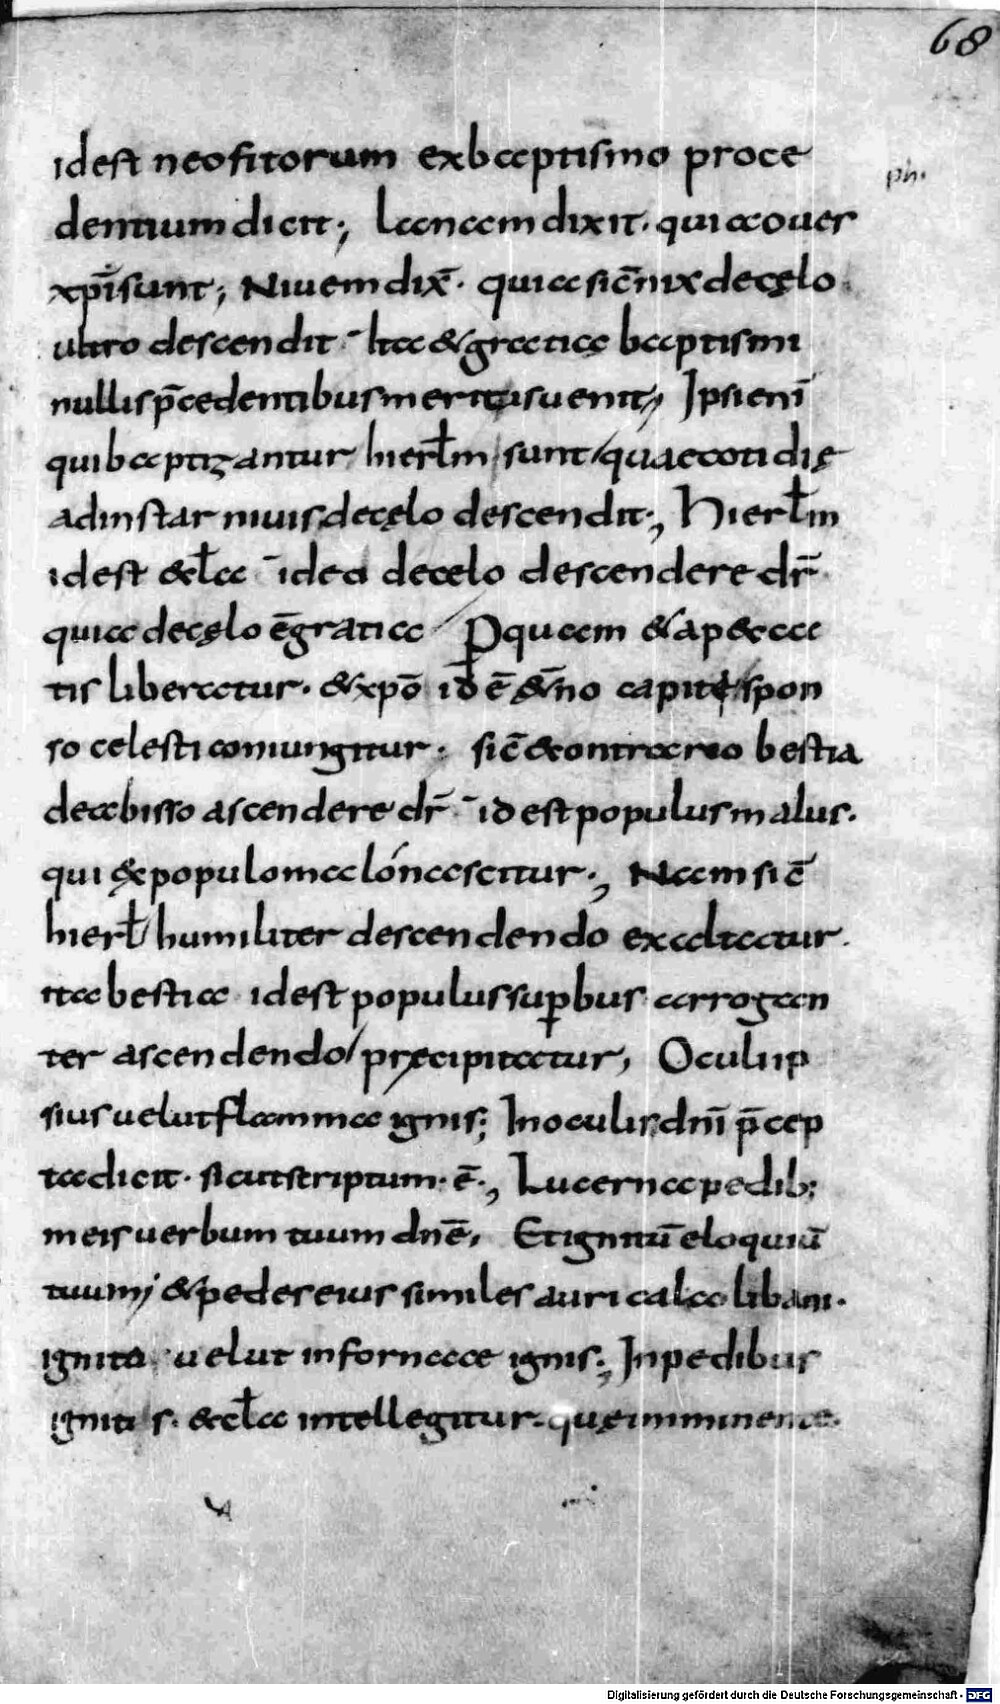 68
idest neofitorum exbaptismo proce
ph.
dentium dicit; Lanam dixit. quia over
xp̄i sunt; Nivem dix̄. quia sic̄ nix de cęlo
ultro descendit ita & gratię baptismi
nullis p̄cedentibus meritis venit; Ipsi eni̅
qui baptizantur hierl̅m sunt quae cotidię
ad instar nivis de cęlo descendit; Hierl̅m
idest ęcl̅a ideo de celo descendere dr̄.
quia de cęlo ē gratia Ꝑ quam & a pecca
tis liberatur. & xp̄o id ē &ērno capiti & spon
so celesti coniungitur. sic̄ econtrario bestia
de abisso ascendere dr̄ id est populus malus.
qui ex populo malo nascitur; Nam sic̄
hierl̅ humiliter descendendo exaltatur.
ita bestia idest populus suꝑbus arrogan
ter ascendendo precipitatur; Oculi ip
sius velut flamma ignis; In oculis dn̄i p̄cep
ta dicit. sicut scriptum. ē.; Lucerna pedib:
meis verbum tuum dn̄e; Et ignitu̅ eloquiu̅
tuum; & pedes eius similes auricalco libani.
ignita velut in fornace ignis; In pedibus
ignitis. ęcl̅a intellegitur. quę imminente
Digitalisierung gefördert durch die Deutsche Forschungsgemeinschaft - DFG